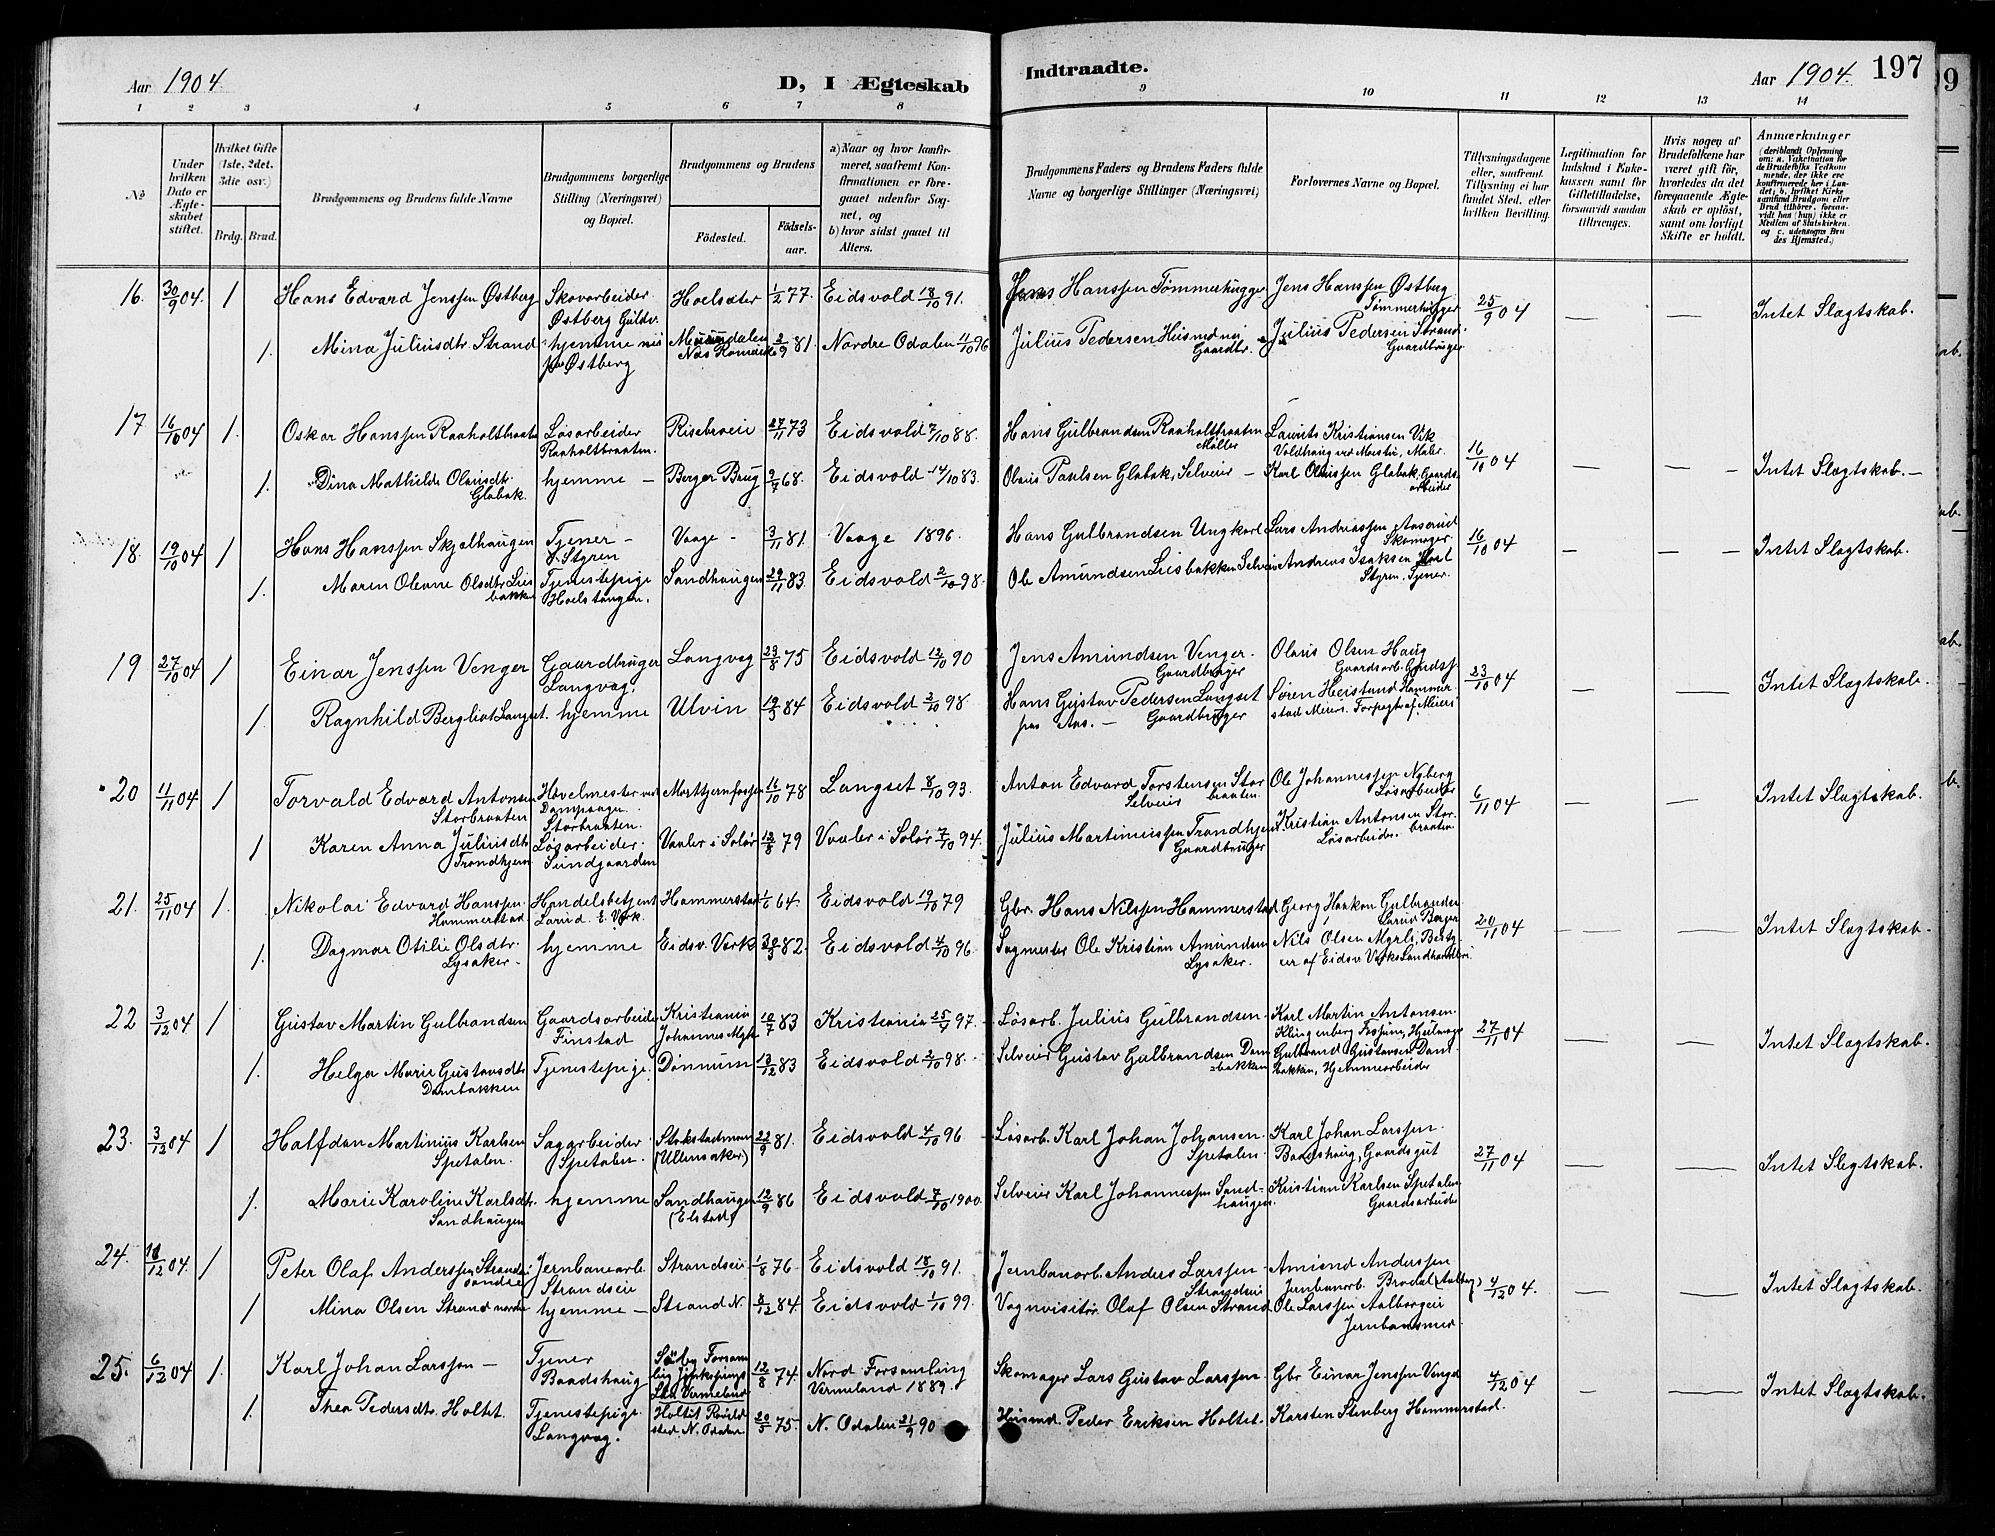 Aar 1904.
D, I Ægteskab Indtraadte.
Aar 1904. 197
1 2 3 4 5 6 7 8 9 10 11 12 13 14
No
Under hvilken Dato er Ægte-skabet stiftet.
Hvilket Gifte (1ste, 2det, 3die osv.)
Brdg. Brud.
Brudgommens og Brudens fulde Navne
Brudgommens borgerlige Stilling (Næringsvei) og Bopæl.
Brudgommens og Brudens
Fødested.
Fødsels-aar.
a) Naar og hvor konfir-meret, saafremt Kon-firmationen er fore-gaaet udenfor Sog-net, og
b) hvor sidst gaaet til Alters.
Brudgommens Faders og Brudens Faders fulde Navne og borgerlige Stillinger (Næringsvei)
Forlovernes Navne og Bopæl.
Tillysningsdagene eller, saafremt Tillysning ei har fundet Sted, efter hvilken Bevilling.
Legitimation for Indskud i Enke-kassen samt for Giftetilladelse, forsaavidt saadan tiltrænges.
Hvis nogen af Brudefolkene har været gift før, hvorledes da det foregaaende Ægte-skab er opløst, samt om lovligt Skifte er holdt.
Anmærkninger
16. 30/9 04. 1 Hans Edvard Jenssen Østberg Skovarbeider Østberg Guldv. Hoelsæter 1/2 77. Eidsvold 18/10 91. Jens Hanssen Tømmerhugger Jens Hanssen Østberg Tømmerhugger 25/9 04 — — Intet Slægtskab.
1. Mina Juliusdtr Strand hjemme Østberg Næs Romerike 2/9 81. Nordre Odalen 11/10 96 Julius Pedersen Gaardbr. Julius Pedersen Strand Gaardbruger
17 16/10 04 1. Oskar Hanssen Raaholtbraaten Løsarbeider Raaholtbraaten. Risebroeie 27/11 73 Eidsvold 7/10 88. Hans Gulbrandsen Raaholtbraaten Møller Laurits Kristiansen Vik 16/10 04 — — Intet Slægtskab. —
1. Dina Mathilde Olausdtr. Glabak. hjemme — Berger Baug 2/7 68. Eidsvold 14/10 83. Olaus Paulsen Glabak, Selveier — Karl Olaussen Glabak, Gaards-arbeider
18. 19/10 04 1 Hans Hanssen Skjelhaugen Tjener — S. Styren Vaage — 3/11 81. Vaage 1896. Hans Gulbrandsen Ungkarl Lars Andreassen Aaserud Skomager 16/10 04 — — — Intet Slægtskab.
1. Maren Oleane Olsdtr. Lisbakken Tjenestepige Hoelstangen. Sandhaugen 29/11 83 Eidsvold 2/10 98. Ole Amundsen Lisbakken Selveier Andreas Isaksen Styren, Tjener.
19 27/10 04 1 Einar Jenssen Venger Gaardbruger Langvag. Langvag 23/8 75 Eidsvold 12/10 90 Jens Amundsen Venger. Gaardbruger Olaus Olsen Haug 23/10 04 — — Intet Slægtskab.
1 Ragnhild Bergliot Langset. hjemme Ulvin 19/3 84 Eidsvold 2/10 98. Hans Gustav Pedersen Langset paa Aas. — Gaardbruger Søren Heistand Hammerstad
20 11/11 04 1 Torvald Edvard Antonsen Storbraaten Høvelmester ved Dampsagen. Storbraaten. 16/10 78 Langset 8/10 93. Anton Edvard Torstensen Storbraaten. Selveier Ole Johannessen Nyberg Løsarbeider 6/11 04 — — Intet Slægtskab.
1 Karen Anna Juliusdtr Trondhjem Løsarbeider Sundgaarden Vaaler i Solør 12/8 79 Vaaler i Solør 7/10 94. Julius Martiniussen Trondhjem Gaardbruger Kristian Antonsen Storbraaten Løsarbeider.
21. 25/11 04 1. Nikolai Edvard Hanssen Hammerstad Handelsbetjent E. Verk. Hammerstad 1/6 64. Eidsvold 19/10 79 Gbr. Hans Nilssen Hammerstad Georg Haakon Gulbrandsen 20/11 04 — — Intet Slægtskab.
1. Dagmar Otilie Olsdtr. Lysaker. hjemme Eidsv. Verk 30/3 82. Eidsvold 4/10 96. Sagmester Ole Kristian Amundsen Lysaker. Nils Olsen Myrli, Besty-rer af Eidsv. Verks Landhandleri.
22 3/12 04 1 Gustav Martin Gulbrandsen Gaardsarbeider Finstad Kristiania Johannes Mgh. 10/7 83 Kristiania 25/4 97. Løsarb. Julius Gulbrandsen. Karl Martin Antonsen. 27/11 04 — — Intet Slægtskab.
1. Helga Marie Gustavsdtr Dambakken Tjenestepige. Dønnum 13/12 83 Eidsvold 2/10 98. Selveier Gustav Gulbrandsen Dambakken Gulbrand Gustavsen Dambakken, Hjemmearbeider
23. 3/12 04 1 Halfdan Martinius Karlsen Spetalen. Sagarbeider Spetalen. (Ullensaker) 22/9 81. Eidsvold 4/10 96 Løsarb. Karl Johan Johansen. Spetalen. Karl Johan Larssen. Baadshaug, Gaardsgut 27/11 04 — — Intet Slegtskab.
1. Marie Karoline Karlsdtr. Sandhaugen hjemme Sandhaugen (Elstad) 12/9 86 Eidsvold 7/10 1900. Selveier Karl Johannessen Sandhaugen. Kristian Karlsen Spetalen Gaardsarbeider
24. 10/12 04. 1 Peter Olaf Anderssen Strand søndre Jernbanearb. Strandseie Strandseie 1/8 76 Eidsvold 18/10 91. Jernbanarb. Anders Larssen Strandseie Amund Anderssen Jernbanarb. 4/12 04. — — Intet Slægtskab.
1 Mina Olsen Strand nordre hjemme — Strand N. 8/12 84 Eidsvold 1/10 99. Vognvisitør Olaf Olsen Strand Ole Larssen
25. 6/12 04 1. Karl Johan Larssen — Tjener Baadshaug 12/8 74. Nord Forsamling Vermeland 1889. Skomager Lars Gustav Larssen. Gbr. Einar Jenssen 4/12 04 — — Intet Slægtskab.
1. Thea Pedersdtr. Holtet. Tjenestepige Langvag. 20/5 75. N. Odalen 21/9 90 Husmd. Peder Eriksen Holtet. Karsten Stenberg Hammerstad.